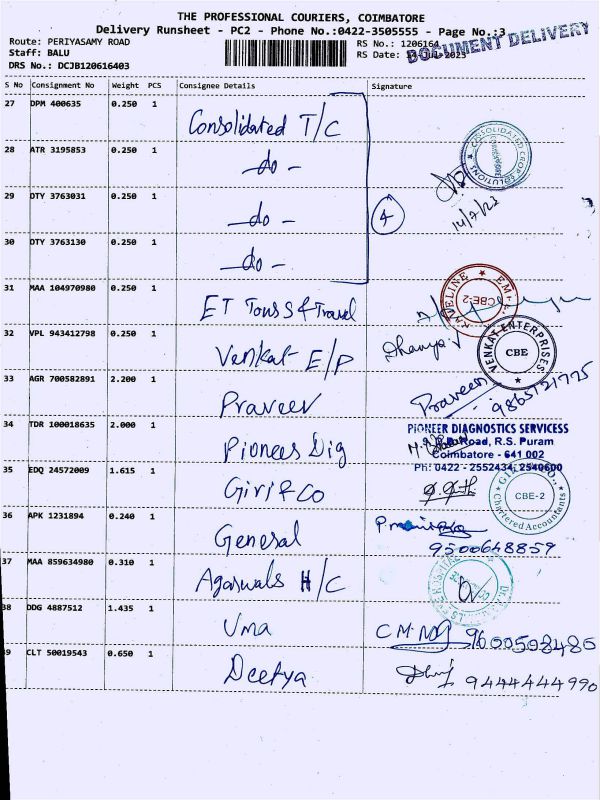 THE PROFESSIONAL COURIERS, COIMBATORE
Delivery Runsheet - PC2 - Phone No.:0422-3505555 - Page No.:3
Route: PERIYASAMY ROAD RS No.: 1206164
DOCUMENT DELIVERY
Staff: BALU RS Date: 14-Jul-2023
DRS No.: DCJB120616403
S No Consignment No Weight PCS Consignee Details Signature
27 DPM 400635 0.250 1 Consolidated T/C
28 ATR 3195853 0.250 1 -do-
CONSOLIDATED CROP SOLUTIONS
29 DTY 3763031 0.250 1 -do- 4 14/7/23
30 DTY 3763130 0.250 1 -do-
31 MAA 104970980 0.250 1 ET Tours & Travel
CBE-2
32 VPL 943412798 0.250 1 Venkat E/P Dhanya.V
VENKAT ENTERPRISES CBE
33 AGR 700582891 2.200 1 Praveen Praveen 9865121725
34 TDR 100018635 2.000 1 Pioneer Dig
PIONEER DIAGNOSTICS SERVICESS
Road, R.S. Puram
Coimbatore - 641 002
Ph: 0422 - 2552434, 2540600
35 EDQ 24572009 1.615 1 Giri & Co
CBE-2 Chartered Accountants
36 APK 1231894 0.240 1 General
9500648859
37 MAA 859634980 0.310 1 Agarwals H/C
38 DDG 4887512 1.435 1 Uma 9600508486
39 CLT 50019543 0.650 1 Deetya 9444444990